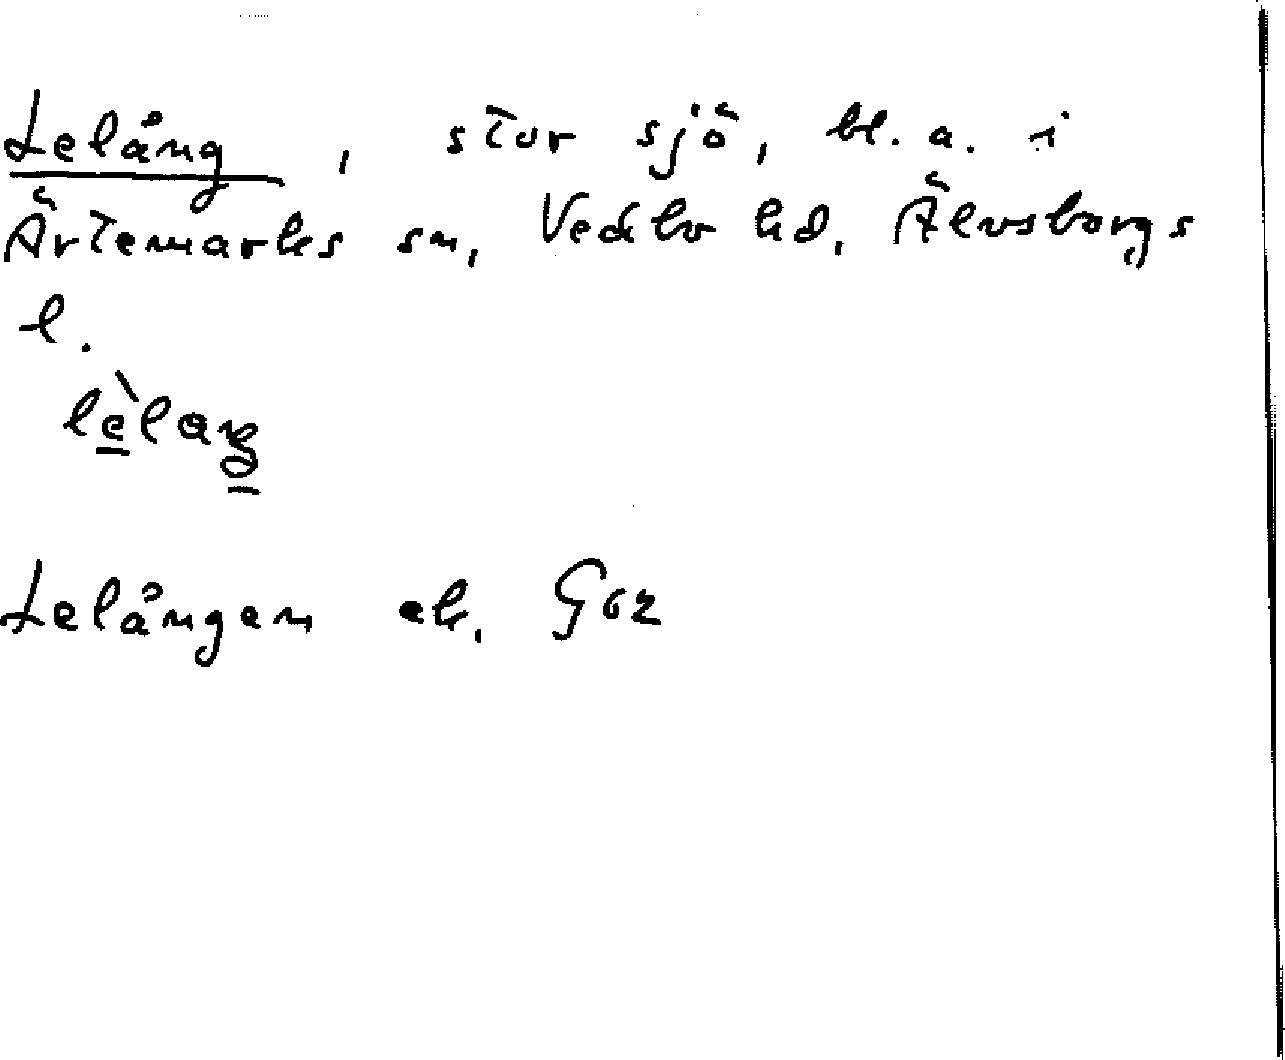 Lelång, stor sjö, bl. a. i
Ärtemarks sn, Vedbo hd, Älvsborgs
l.
lèlaŋ
Lelången ek.